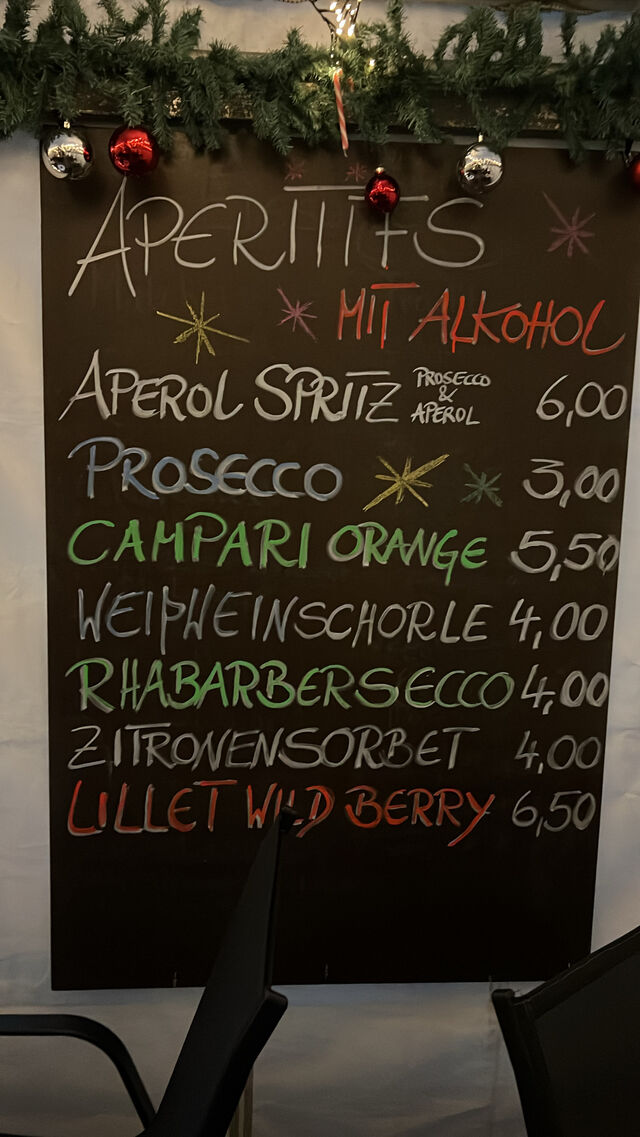 APERITIFS
MIT ALKOHOL
APEROL SPRITZ PROSECCO & APEROL 6,00
PROSECCO 3,00
CAMPARI ORANGE 5,50
WEIßWEINSCHORLE 4,00
RHABARBERSECCO 4,00
ZITRONENSORBET 4,00
LILLET WILD BERRY 6,50